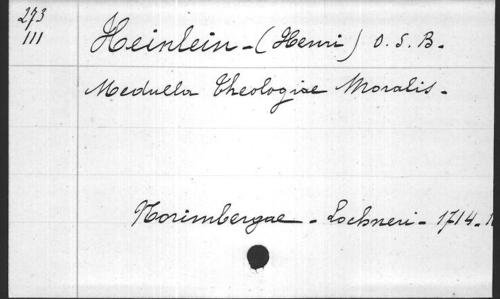 273
III
Heinlein - (Henri) O. S. B. -
Medulla Theologiae Moralis -
Norimbergae - Lochneri - 1714 -